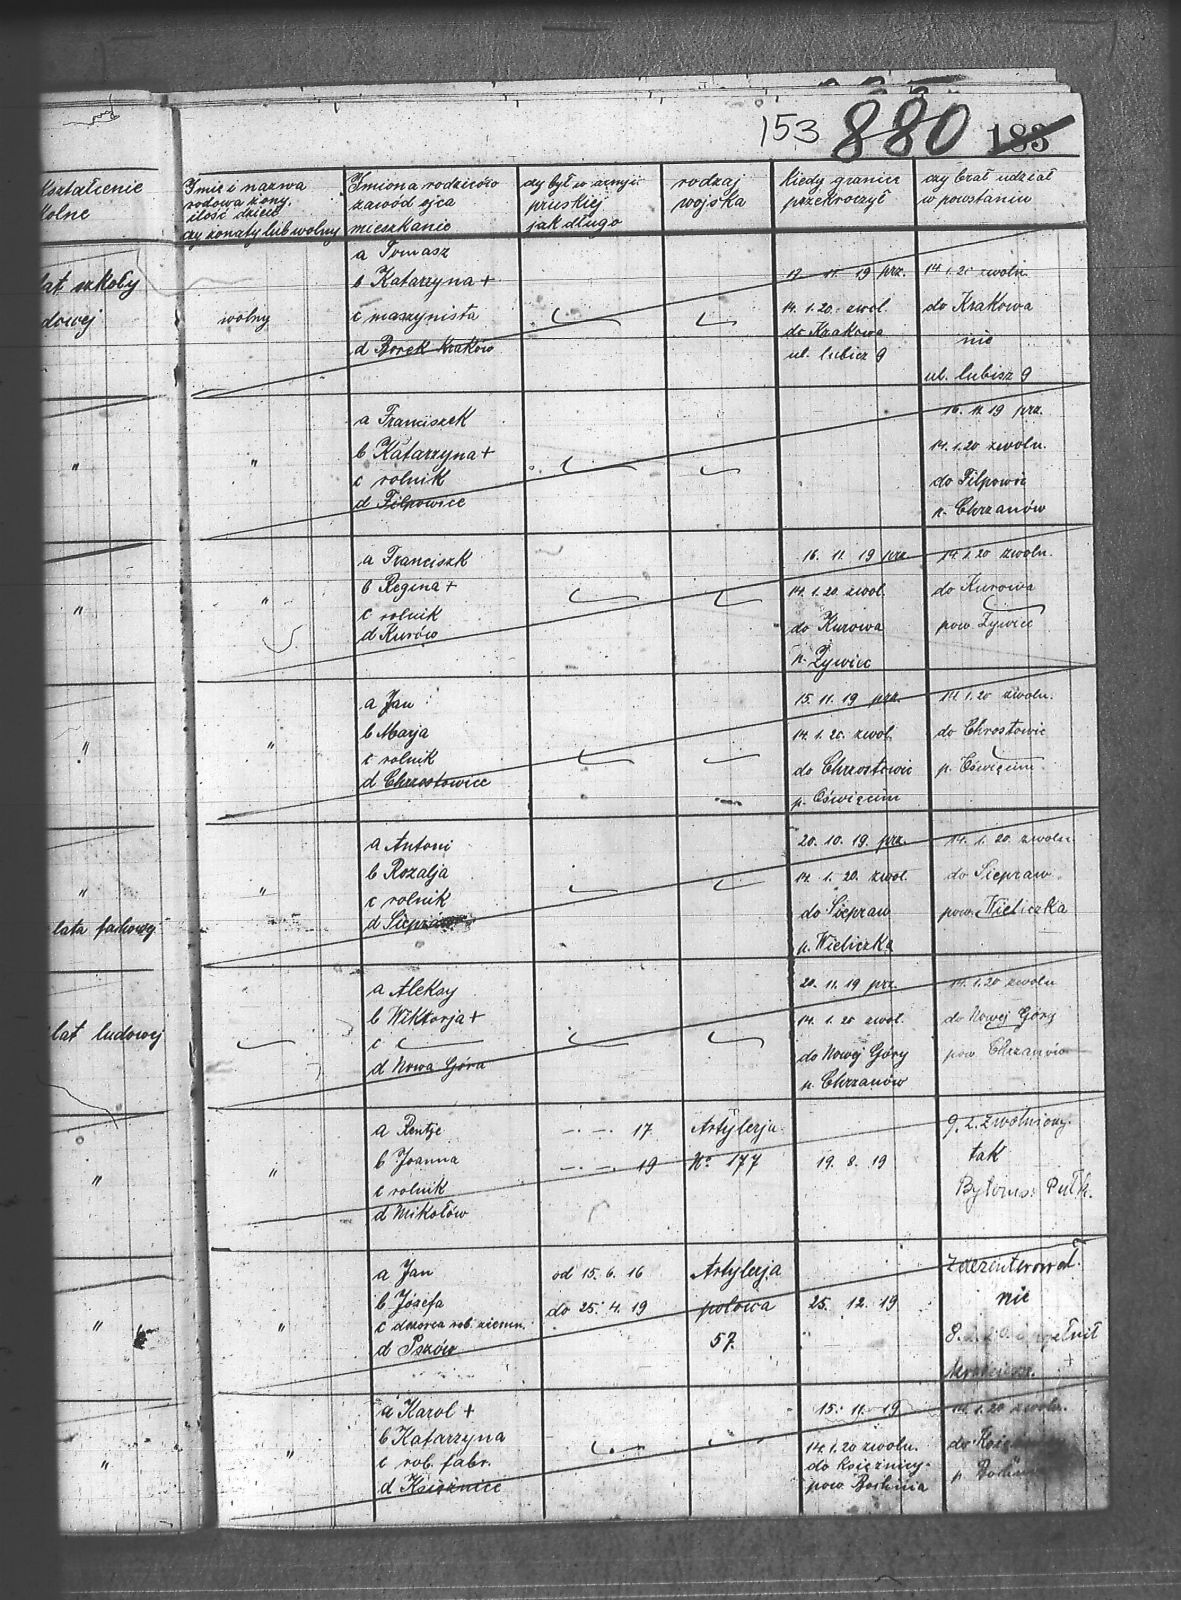 153 880 183
kształcenie
kolne
Imię i nazwa
rodowa żony,
ilość dzieci
czy żonaty lub wolny
Imiona rodziców
zawód ojca
mieszkanie
czy był w armji
pruskiej
jak długo
rodzaj
wojska
Kiedy granicę
przekroczył
czy brał udział
w powstaniu
lat szkoły
dowej
wolny
a Tomasz
b Katarzyna +
c maszynista
d Borek Kraków
17. 11. 19 prz.
14. 1. 20. zwol.
do Krakowa
ul. Lubicz 9
14. 1. 20 zwoln.
do Krakowa
nie
ul. Lubisz 9
"
"
a Franciszek
b Katarzyna +
c rolnik
d Filpowice
16. 11. 19 prz.
14. 1. 20 zwoln.
do Filpowic
p. Chrzanów
"
"
a Franciszk
b Regina +
c rolnik
d Kurów
16. 11. 19 prz.
14. 1. 20. zwol.
do Kurowa
p. Żywiec
14. 1. 20 zwoln.
do Kurowa
pow. Żywiec
"
"
a Jan
b Marja
c rolnik
d Chrostowice
15. 11. 19 prz.
14. 1. 20. zwol.
do Chrostowic
p. Oświęcim
14. 1. 20 zwoln.
do Chrostowic
p. Oświęcim
"
lata fachowej
"
a Antoni
b Rozalja
c rolnik
d Siepraw
20. 10. 19. prz.
14. 1. 20. zwol.
do Siepraw
p. Wieliczka
14. 1. 20. zwoln.
do Siepraw
pow. Wieliczka
lat ludowej
a Aleksy
b Wiktorja +
c
d Nowa Góra
20. 11. 19 prz.
14. 1. 20 zwol.
do Nowej Góry
p. Chrzanów
14. 1. 20 zwoln
do Nowej Góry
pow. Chrzanów
"
"
a
b Joanna
c rolnik
d Mikołów
—.—. 17
—.—. 19
Artylerja
No 177
19. 8. 19
9. 2. zwolniony.
tak
Bytoms. Pułk.
"
"
a Jan
b Józefa
c dozorca rob. ziemn.
d Pszów
od 15. 6. 16
do 25. 4. 19
Artylerja
polowa
57.
25. 12. 19
Zdezenterował.
nie
"
"
a Karol +
b Katarzyna
c rob. fabr.
d Książnice
15. 11. 19
14. 1. 20 zwoln.
do Książnicy.
pow. Bochnia
14. 1. 20 zwoln.
do
p. Bochnia